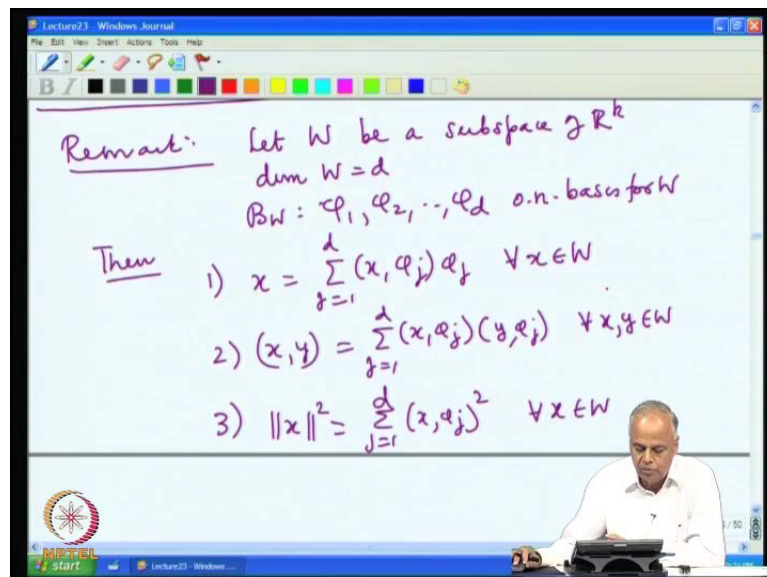 Lecture23 - Windows Journal
File Edit View Insert Actions Tools Help
B I
Remark: Let W be a subspace of R^k
dim W = d
B_W : φ_1, φ_2, .., φ_d o.n. bases for W
Then
1) x = \sum_{j=1}^{d} (x, φ_j) φ_j ∀ x ∈ W
2) (x, y) = \sum_{j=1}^{d} (x, φ_j)(y, φ_j) ∀ x, y ∈ W
3) ‖x‖^2 = \sum_{j=1}^{d} (x, φ_j)^2 ∀ x ∈ W
/ 50
NPTEL
start Lecture23 - Windows ...